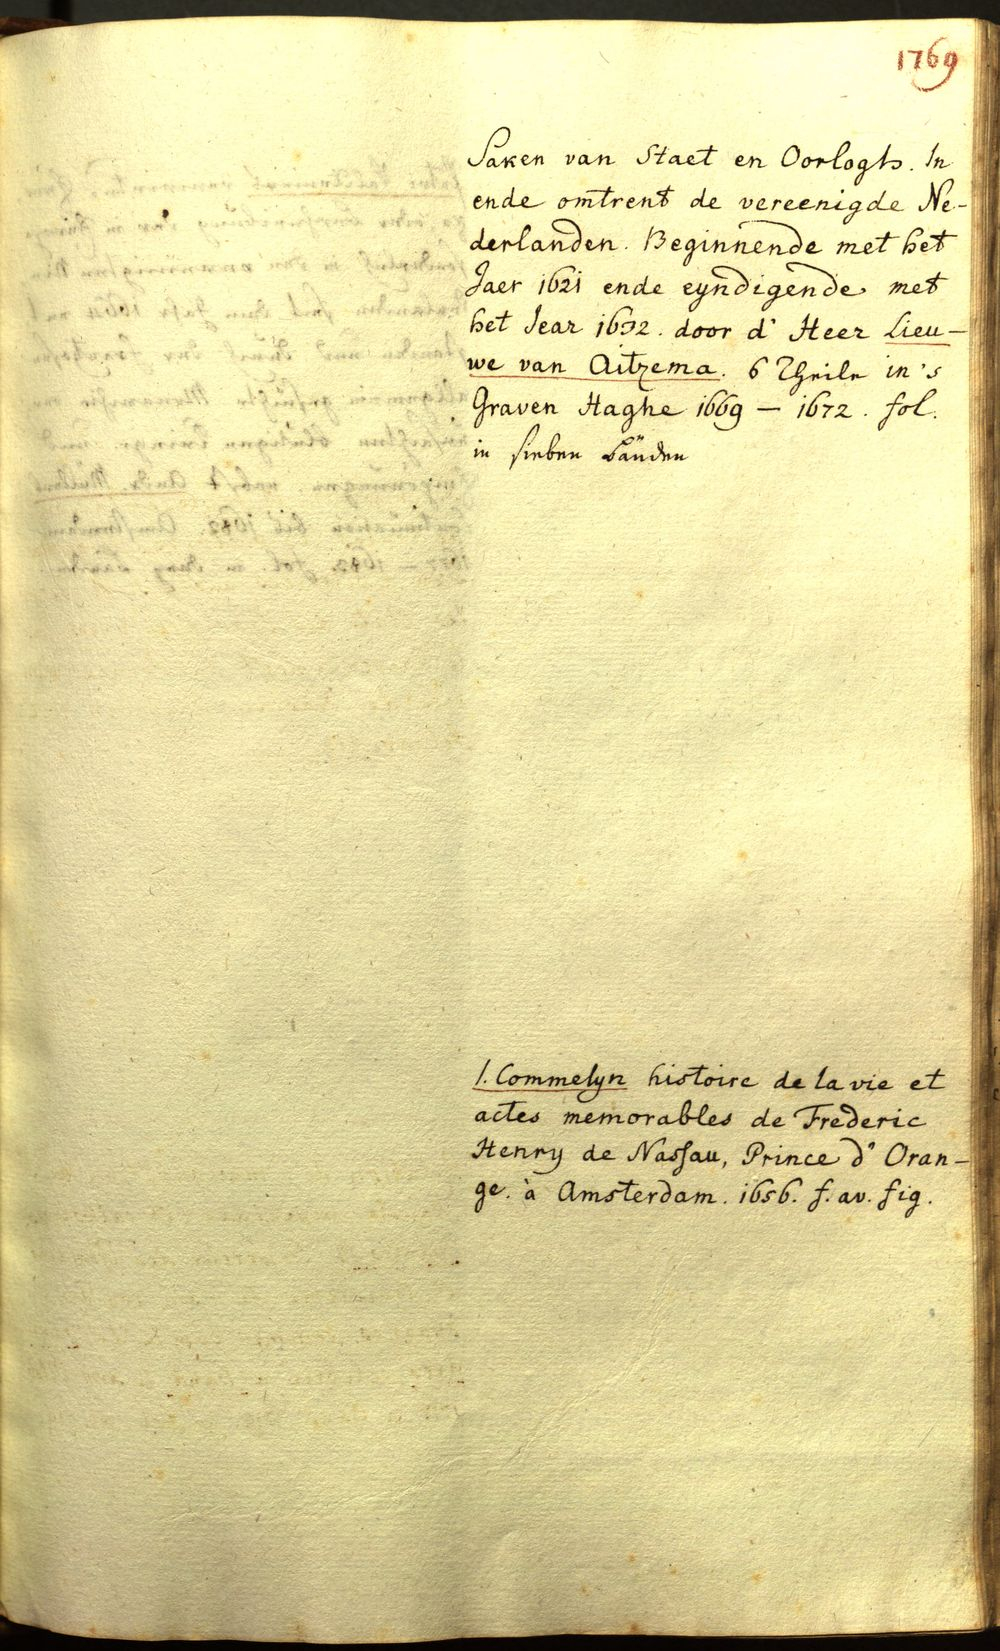 1769
Saken van Staet en Oorlogh. In
ende omtrent de vereenigde Ne-
derlanden. Beginnende met het
Jaer 1621 ende eyndigende met
het Jear 1632. door d' Heer Lieu-
we van Aitzema. 6 Theile in 's
Graven Haghe 1669 - 1672. fol.
in sieben Bänden
I. Commelyn histoire de la vie et
actes memorables de Frederic
Henry de Nassau, Prince d' Oran-
ge. à Amsterdam. 1656. f. av. fig.